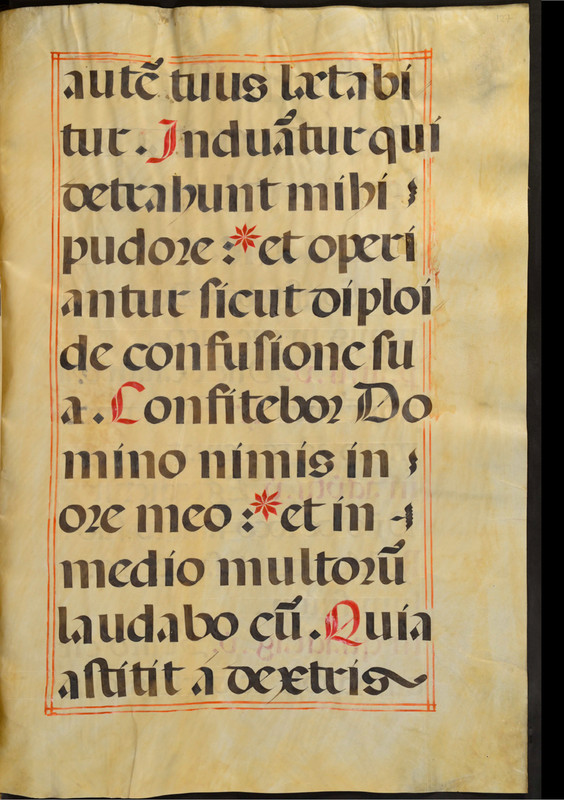 autē tuus lætabi
tur. Induātur qui
detrahunt mihi
pudore :* et operi
antur ſicut diploi
de confuſione ſu
a. Confitebor Do
mino nimis in
ore meo :* et in
medio multorū
laudabo eū. Quia
aſtitit á dextris